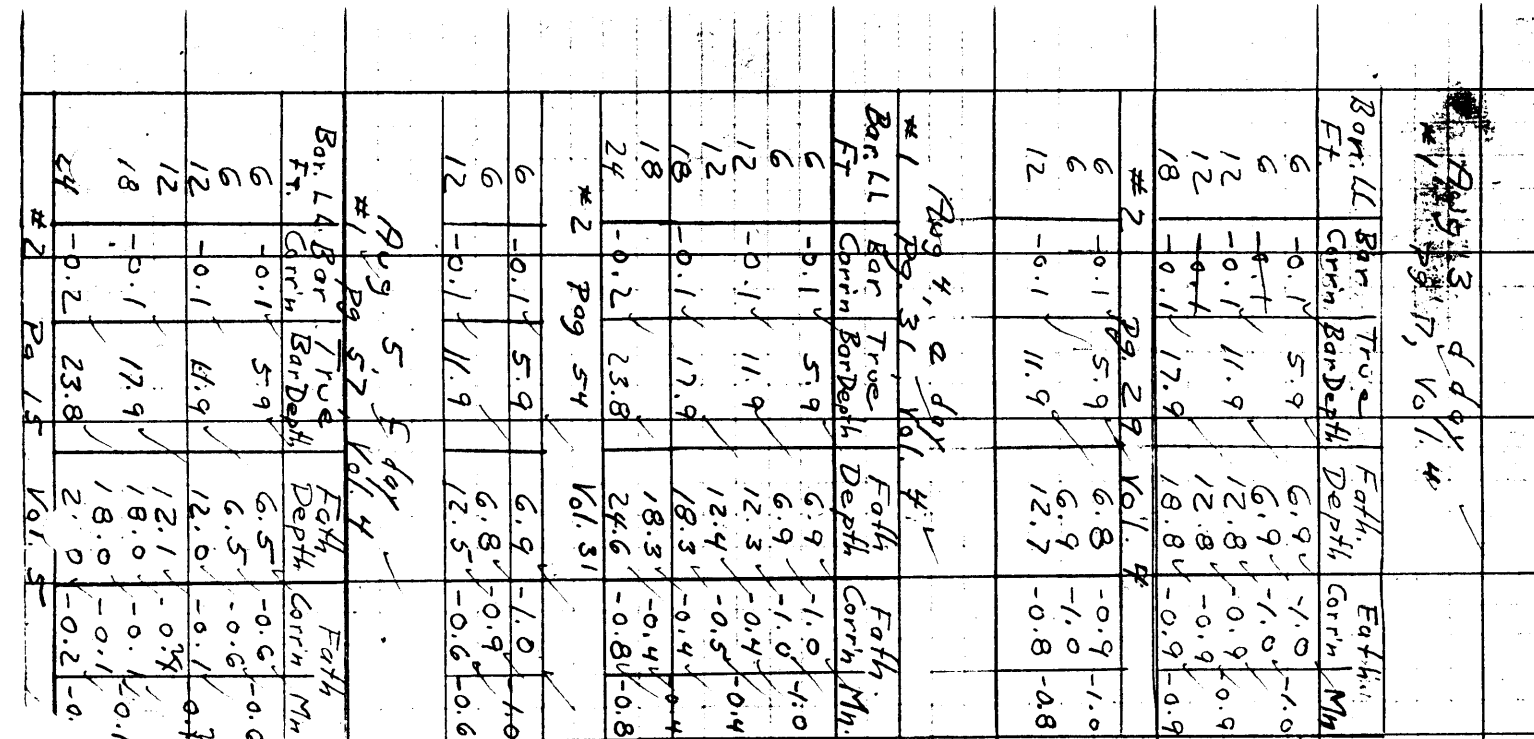 Aug. 3 d day
#1 Pg. 17, Vol. 4
Bar. LL Bar True Fath. Fath.
Ft. Corr'n Bar Depth Depth Corr'n Mn
6 -0.1 5.9 6.9 -1.0 -1.0
6 -0.1 6.9 -1.0
12 -0.1 11.9 12.8 -0.9 -0.9
12 -0.1 12.8 -0.9
18 -0.1 17.9 18.8 -0.9 -0.9
#2 Pg. 29 Vol. 4
6 -0.1 5.9 6.8 -0.9 -1.0
6 6.9 -1.0
12 -0.1 11.9 12.7 -0.8 -0.8
Aug 4, e day
#1 Pg. 31, Vol. 4
Bar. LL Bar True Fath Fath.
Ft Corr'n Bar Depth Depth Corr'n Mn.
6 -0.1 5.9 6.9 -1.0 -1.0
6 6.9 -1.0
12 -0.1 11.9 12.3 -0.4 -0.4
12 12.4 -0.5
18 -0.1 17.9 18.3 -0.4 -0.4
18 18.3 -0.4
24 -0.2 23.8 24.6 -0.8 -0.8
#2 Pag 54 Vol. 31
6 -0.1 5.9 6.9 -1.0 -1.0
6 6.8 -0.9
12 -0.1 11.9 12.5 -0.6 -0.6
Aug 5, f day
#1, Pg 57 Vol. 4
Bar. LL Bar True Fath Fath
Ft. Corr'n Bar Depth Depth Corr'n Mn
6 -0.1 5.9 6.5 -0.6 -0.6
6 6.5 -0.6
12 -0.1 11.9 12.0 -0.1
12 12.1
18 -0.1 17.9 18.0 -0.1 -0.1
18.0 -0.1
24 -0.2 23.8 2.0 -0.2 -0.
#2 Pg 15 Vol. 5